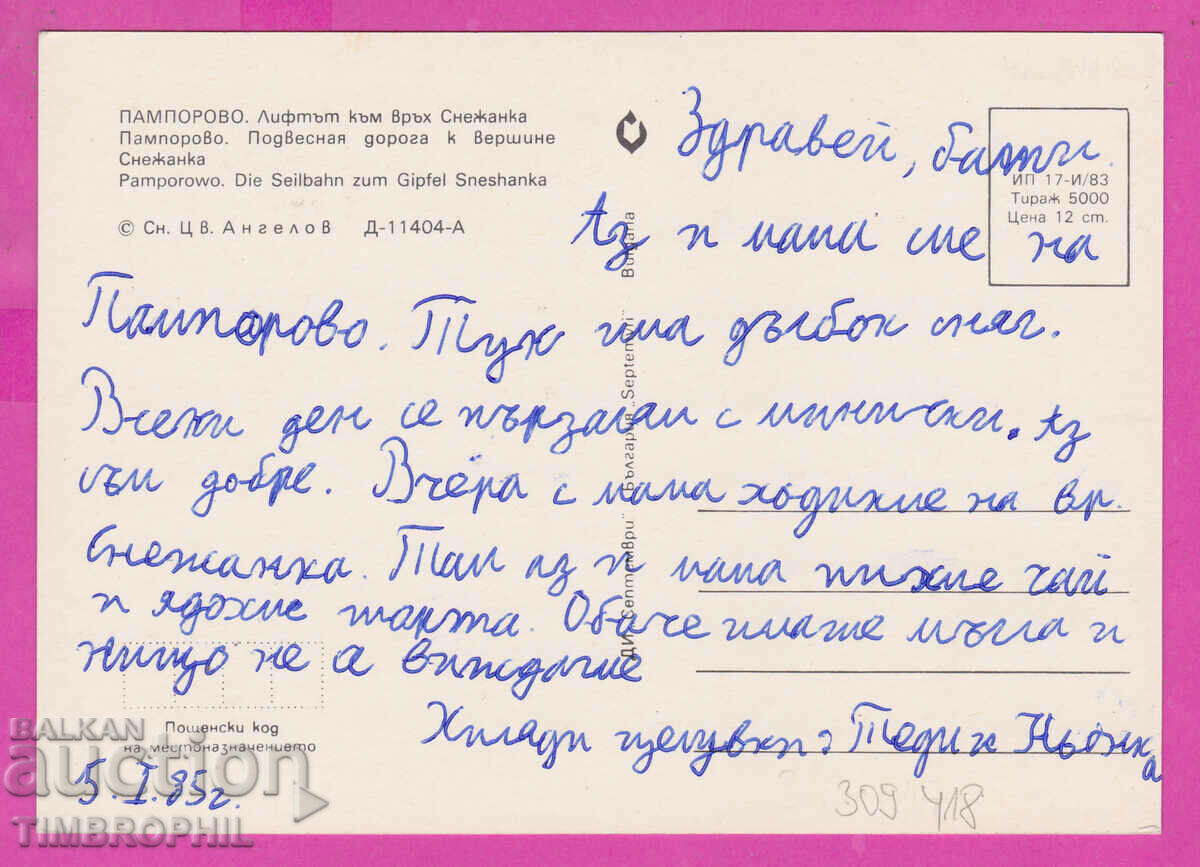 ПАМПОРОВО. Лифтът към връх Снежанка
Пампорово. Подвесная дорога к вершине
Снежанка
Pamporowo. Die Seilbahn zum Gipfel Sneshanka
© Сн. Цв. Ангелов Д-11404-А
ИП 17-И/83
Тираж 5000
Цена 12 ст.
ДИ „Септември" България „Septemvri" Bulgaria
Здравей,
Аз и мама сме на
Пампорово. Тук има дълбок сняг.
Всеки ден се пързалям с миниски. Аз
съм добре. Вчера с мама ходихме на вр.
Снежанка. Там аз и мама пихме чай
и ядохме торта. Обаче имаше мъгла и
нищо не се виждаше
Хиляди целувки: Теди и Ньонка
Пощенски код
на местоназначението
5.I.85г.
309 418
BALKAN
auction
TIMBROPHIL